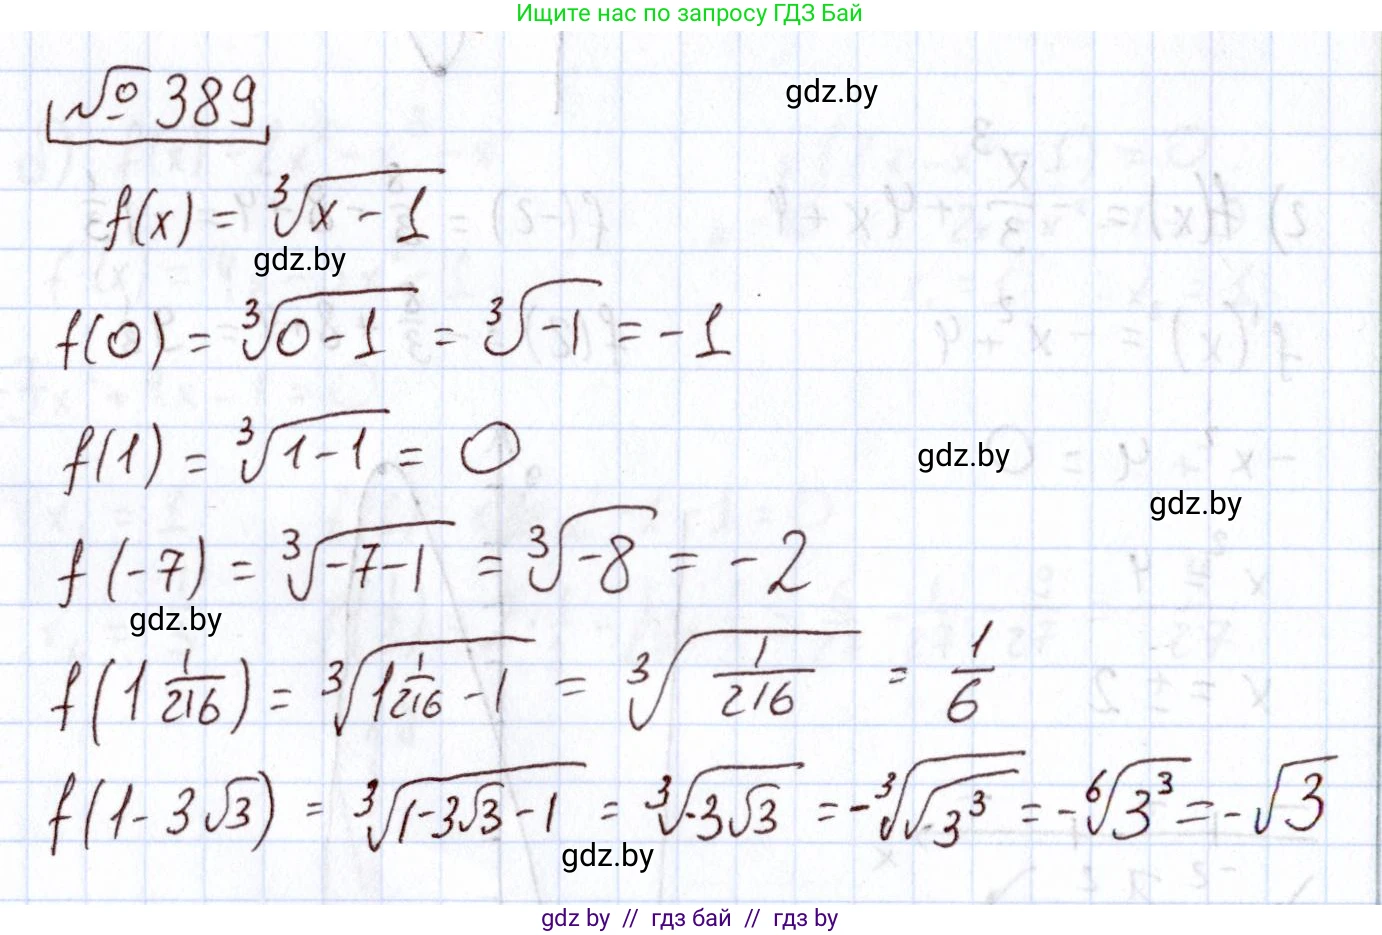 Ищите нас по запросу ГДЗ Бай
№ 389
gdz.by
f(x) = ∛(x - 1)
gdz.by
f(0) = ∛(0-1) = ∛(-1) = -1
f(1) = ∛(1-1) = 0
gdz.by
gdz.by
f(-7) = ∛(-7-1) = ∛(-8) = -2
gdz.by
f(1 1/216) = ∛(1 1/216 - 1) = ∛(1/216) = 1/6
f(1-3√3) = ∛(1-3√3-1) = ∛(-3√3) = -∛(√(3³)) = -⁶√(3³) = -√3
gdz.by
gdz by // гдз бай // гдз by